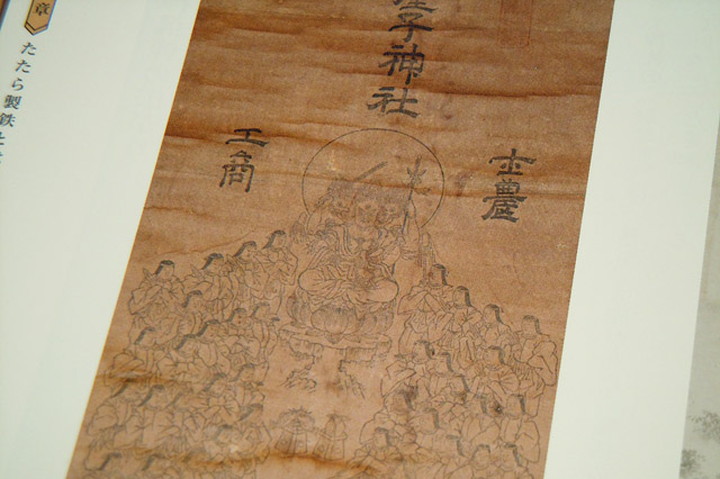 屋子神社
士農
工商
章
たたら製鉄と